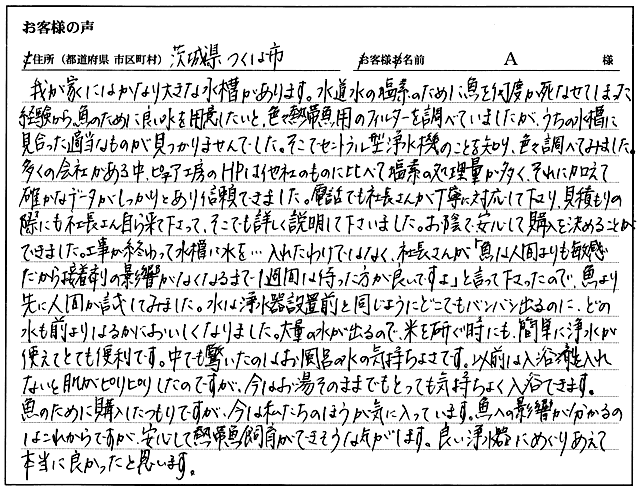 お客様の声
ご住所（都道府県 市区町村） 茨城県つくば市 お客様お名前 A 様
我が家にはかなり大きな水槽があります。水道水の塩素のために魚を何度か死なせてしまった
経験から、魚のために良い水を用意したいと、色々熱帯魚用のフィルターを調べていましたが、うちの水槽に
見合った適当なものが見つかりませんでした。そこでセントラル型浄水機のことを知り、色々調べてみました。
多くの会社がある中、ピュア工房のHPは他社のものに比べて塩素の処理量が多く、それに加えて
確かなデータがしっかりとあり信頼できました。電話でも社長さんが丁寧に対応して下さり、見積もりの
際にも社長さん自ら来て下さって、そこでも詳しく説明して下さいました。お陰で安心して購入を決めることが
できました。工事が終わって水槽に水を…入れたわけではなく、社長さんが「魚は人間よりも敏感
だから接着剤の影響がなくなるまで1週間は待った方が良いですよ」と言って下さったので、魚より
先に人間が試してみました。水は浄水器設置前と同じようにどこでもバンバン出るのに、どの
水も前よりはるかにおいしくなりました。大量の水が出るので、米を研ぐ時にも、簡単に浄水が
使えてとても便利です。中でも驚いたのはお風呂の水の気持ちよさです。以前は入浴剤を入れ
ないと肌がピリピリしたのですが、今はお湯そのままでもとっても気持ちよく入浴できます。
魚のために購入したつもりですが、今は私たちのほうが気に入っています。魚への影響が分かるの
はこれからですが、安心して熱帯魚飼育ができそうな気がします。良い浄水器にめぐりあえて
本当に良かったと思います。